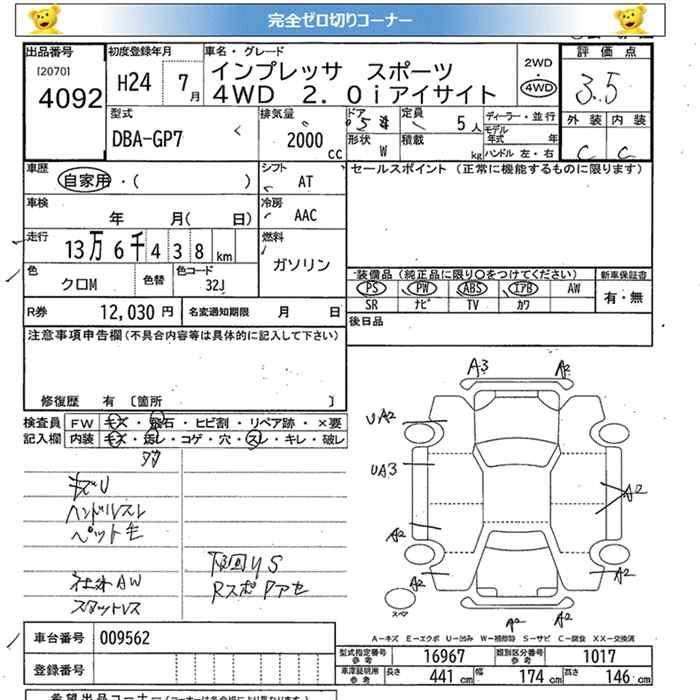 完全ゼロ切りコーナー
出品番号 初度登録年月 車名・グレード 2WD 評価点
[2070] H24 7月 インプレッサ スポーツ ・ 3.5
4092 4WD 2.0iアイサイト 4WD
型式 排気量 ドア 定員 ディーラー・並行 外装 内装
DBA-GP7 2000 CC 5 5人 モデル年式 年 C C
形状 W 積載 kg ハンドル 左・右
車歴 シフト セールスポイント (正常に機能するものに限ります)
自家用・( ) AT
車検 冷房
年 月( 日) AAC
走行 燃料
13万6千438km ガソリン
色 色替 色コード 装備品 (純正品に限り〇をつけてください) 新車保証書
クロM 32J PS PW ABS エアB AW 有・無
SR ナビ TV カワ
R券 12,030円 名変通知期限 月 日 後日品
注意事項申告欄 (不具合内容等は具体的に記入して下さい)
修復歴 有 〔箇所 〕
検査員 FW キズ・飛石・ヒビ割・リペア跡・×要
記入欄 内装 キズ・汚レ・コゲ・穴・スレ・キレ・破レ
キズU
ハンドルスレ
ペット毛
社外AW
スタットレス
下回りS
A3 A2
UA2
UA3
A2
A2
A2
A2
A2 A2
スペア
A－キズ E－エクボ U－凹み W－補修跡 S－サビ C－腐食 XX－交換済
車台番号 009562
登録番号
型式指定番号 参考 16967 類別区分番号 参考 1017
車庫証明用 参考 長さ 441cm 幅 174cm 高さ 146cm
希望出品コーナー